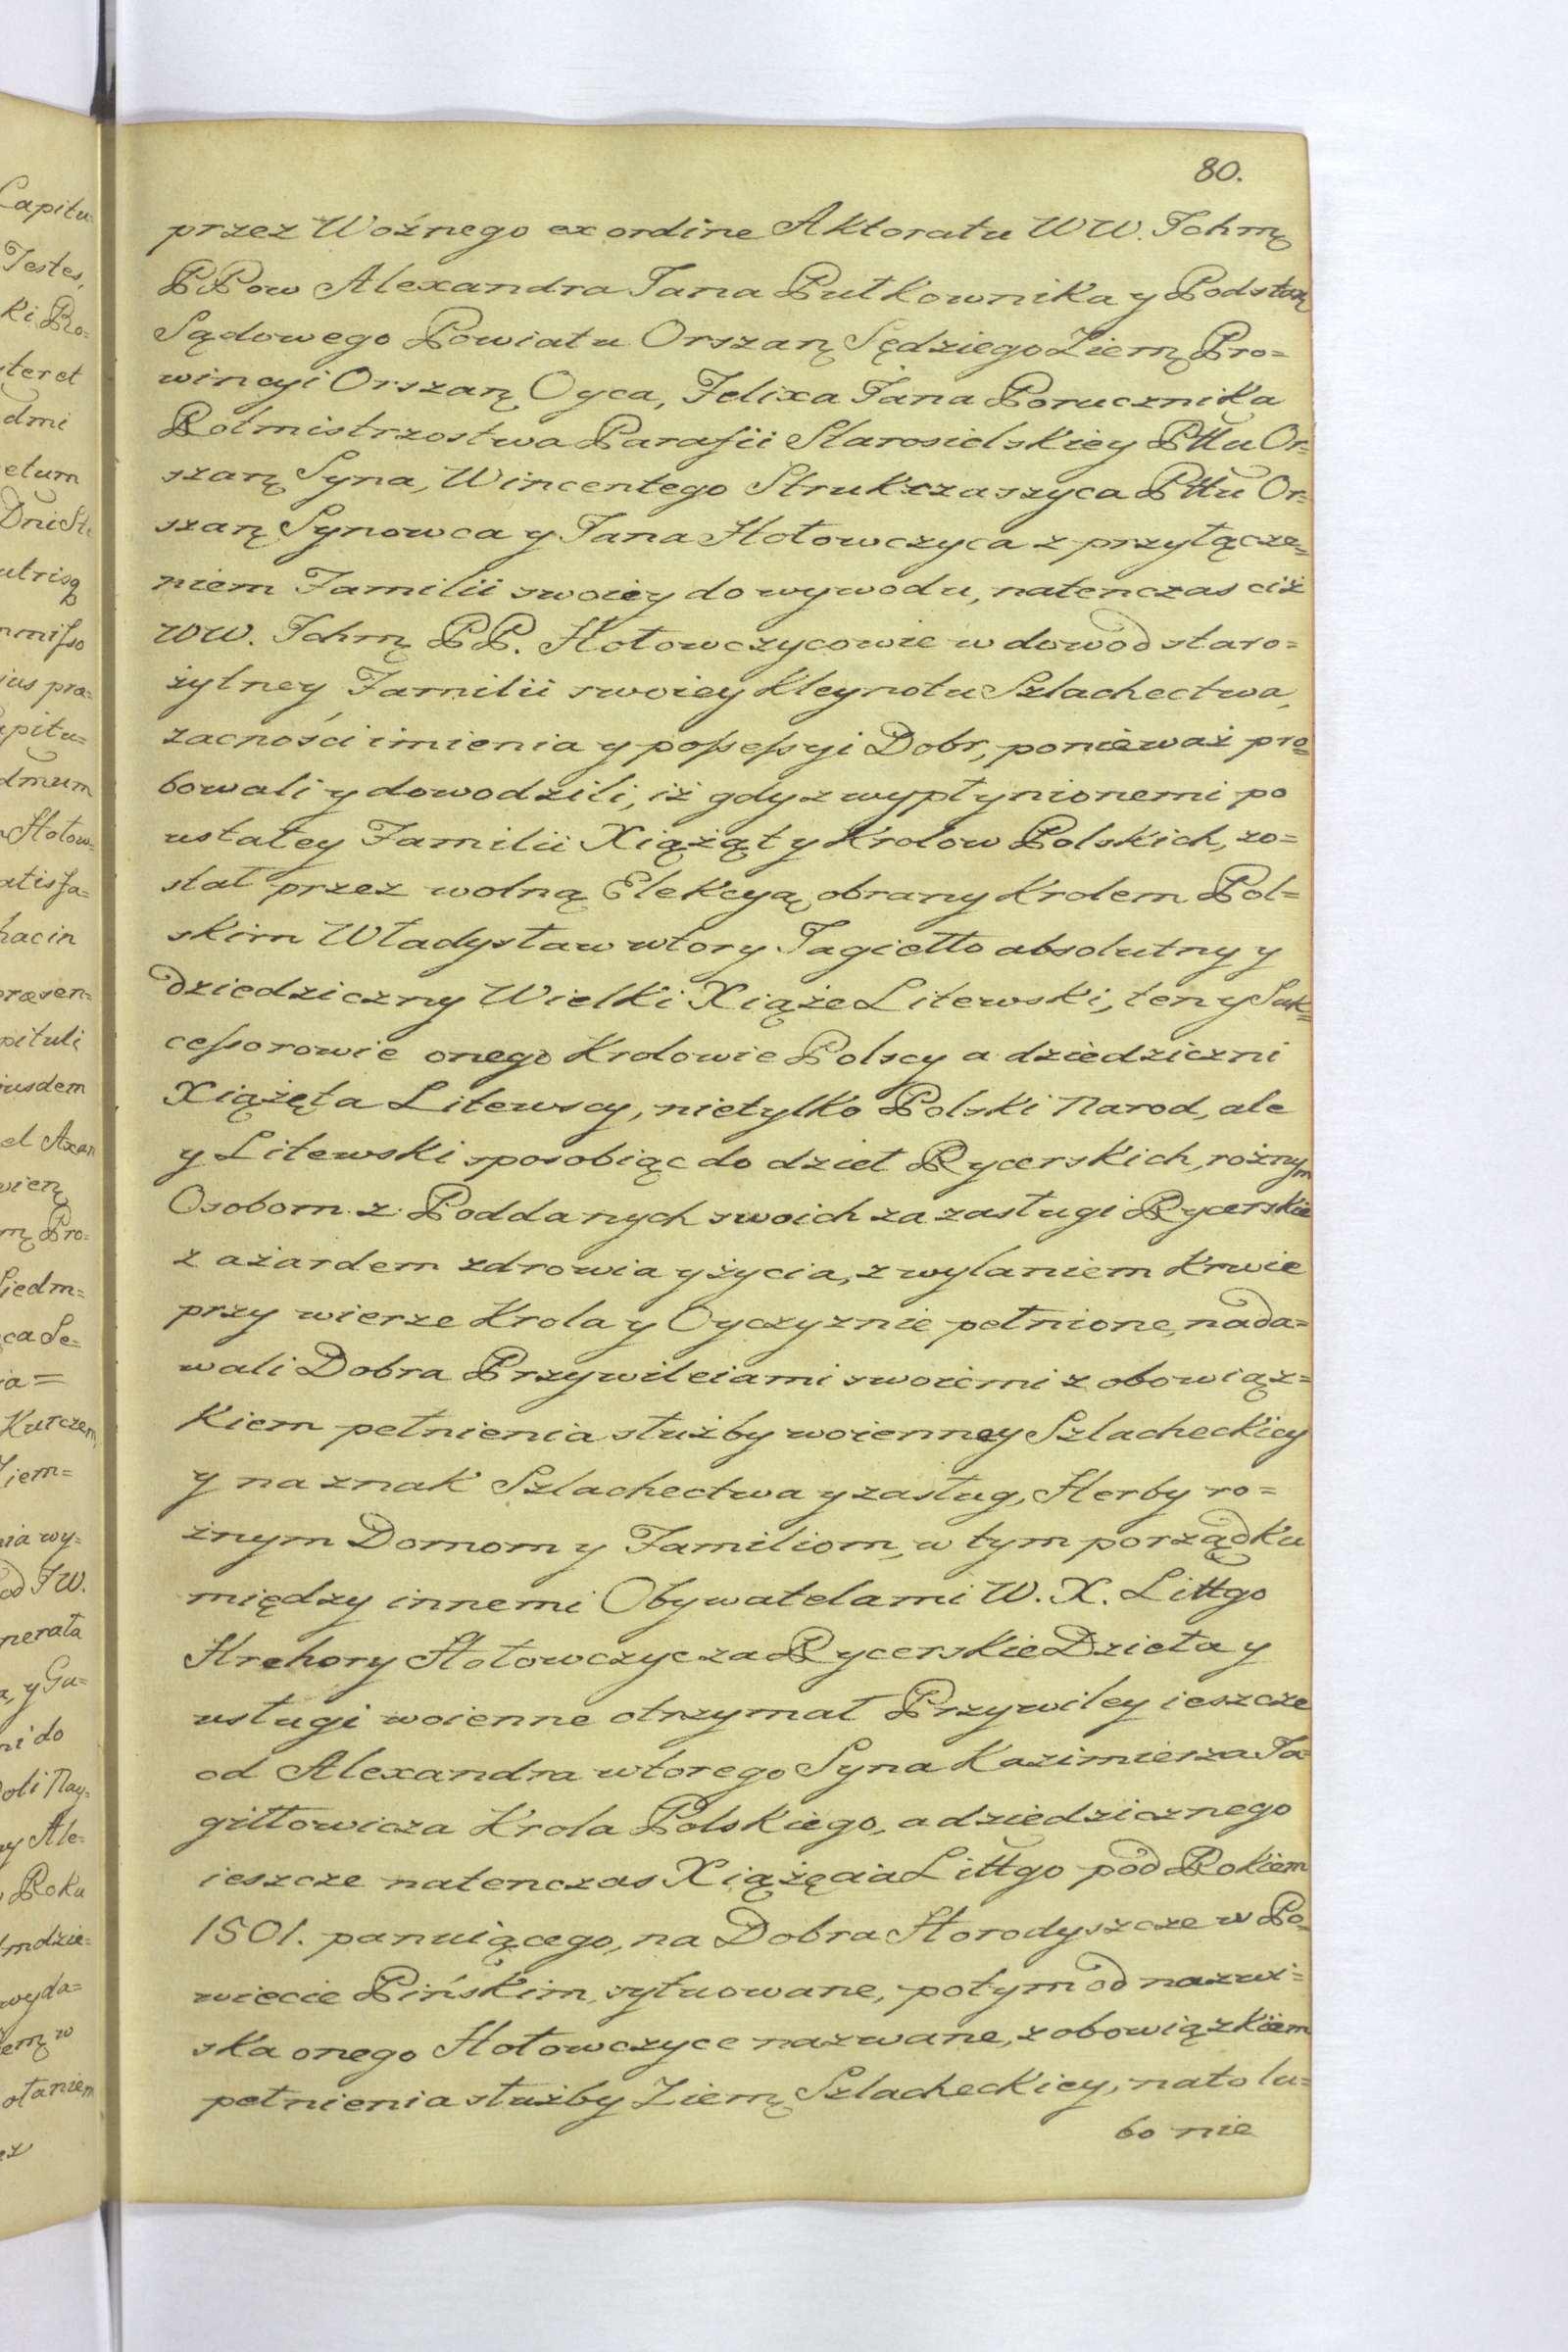 80.
przez Woźnego ex ordine Aktoratu WW. Ichmę
PPow Alexandra Jana Pułkownika y Podstarę
Sądowego Powiatu Orszanę Sędziego Ziemę Pro=
wincyi Orszanę Oyca, Felixa Jana Porucznika
Rotmistrzostwa Parafii Starosielskiey Pttu Or=
szanę Syna, Wincentego Strukczaszyca Pttu Or=
szanę Synowca y Jana Hołowczyca z przyłącze=
niem Familii swoiey do wywodu, natenczas ciż
WW. Ichmę PP. Hołowczycowie w dowod staro=
żytney Familii swoiey Kleynotu Szlachectwa,
zacności imienia y possessyi Dobr, ponieważ pro=
bowali y dowodzili, iż gdy z wypłynionemi po
ustałey Familii Xiążąt y Krolow Polskich, zo=
stał przez wolną Elekcyą obrany Krolem Pol=
skim Władysław wtory Jagiełło absolutny y
dziedziczny Wielki Xiąże Litewski, ten y Suk=
cessorowie onego Krolowie Polscy a dziedziczni
Xiążęta Litewscy, nietylko Polski Narod, ale
y Litewski sposobiąc do dzieł Rycerskich, rożnym
Osobom z Poddanych swoich za zasługi Rycerskie
z ażardem zdrowia y życia, z wylaniem Krwie
przy wierze Krola y Oyczyznie pełnione, nada=
wali Dobra Przywileiami swoiemi z obowiąz=
kiem pełnienia służby woienney Szlacheckiey
y na znak Szlachectwa y zasług, Herby ro=
żnym Domom y Familiom, w tym porządku
między innemi Obywatelami W. X. Littgo
Hrehory Hołowczyc za Rycerskie Dzieła y
usługi woienne otrzymał Przywiley ieszcze
od Alexandra wtorego Syna Kazimierza Ja=
giłłowicza Krola Polskiego, a dziedzicznego
ieszcze natenczas Xiążęcia Littgo pod Rokiem
1501. panuiącego, na Dobra Horodyszcze w Po=
wiecie Pińskim sytuowane, potym od nazwi=
ska onego Hołowczyce nazwane, z obowiązkiem
pełnienia służby Ziemę Szlacheckiey, na to lu=
bo nie